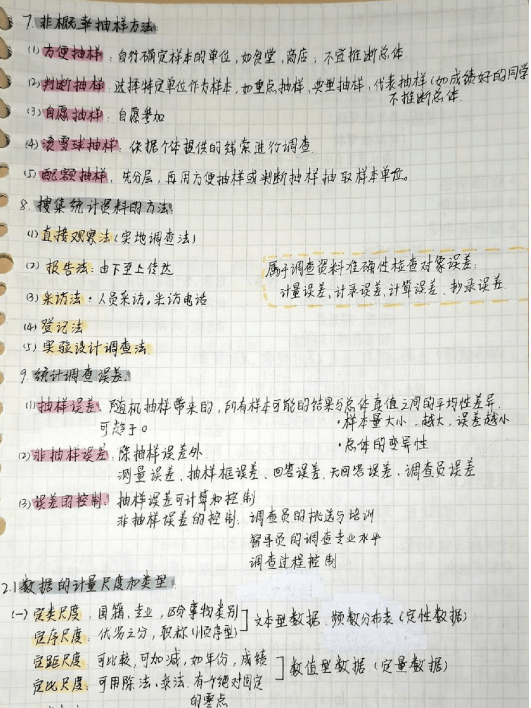 7. 非概率抽样方法
(1) 方便抽样：自行确定样本的单位，如食堂、商店，不宜推断总体
(2) 判断抽样：选择特定单位作为样本，如重点抽样，典型抽样，代表抽样(如成绩好的同学
不推断总体
(3) 自愿抽样：自愿参加
(4) 滚雪球抽样：依据个体提供的线索进行调查
(5) 配额抽样：先分层，再用方便抽样或判断抽样抽取样本单位。
8. 搜集统计资料的方法
(1) 直接观察法(实地调查法)
(2) 报告法：由下至上传达
属于调查资料准确性检查对象误差：
计量误差、计录误差、计算误差、抄录误差
(3) 采访法：人员采访，采访电话
(4) 登记法
(5) 实验设计调查法
9. 统计调查误差
(1) 抽样误差：随机抽样带来的，所有样本可能的结果与总体真值之间的平均性差异.
可趋于0
·样本量大小，越大，误差越小
·总体的变异性
(2) 非抽样误差：除抽样误差外.
测量误差、抽样框误差、回答误差、无回答误差、调查员误差
(3) 误差的控制：抽样误差可计算和控制
非抽样误差的控制：调查员的挑选与培训
督导员的调查专业水平
调查过程控制
2.1 数据的计量尺度和类型
(一) 定类尺度：国籍、专业，区分事物类别
定序尺度：优劣之分，职称(顺序型)
]文本型数据：频数分布表(定性数据)
定距尺度：可比较，可加减，如年份，成绩
定比尺度：可用除法、乘法，有个绝对固定
的零点
]数值型数据(定量数据)